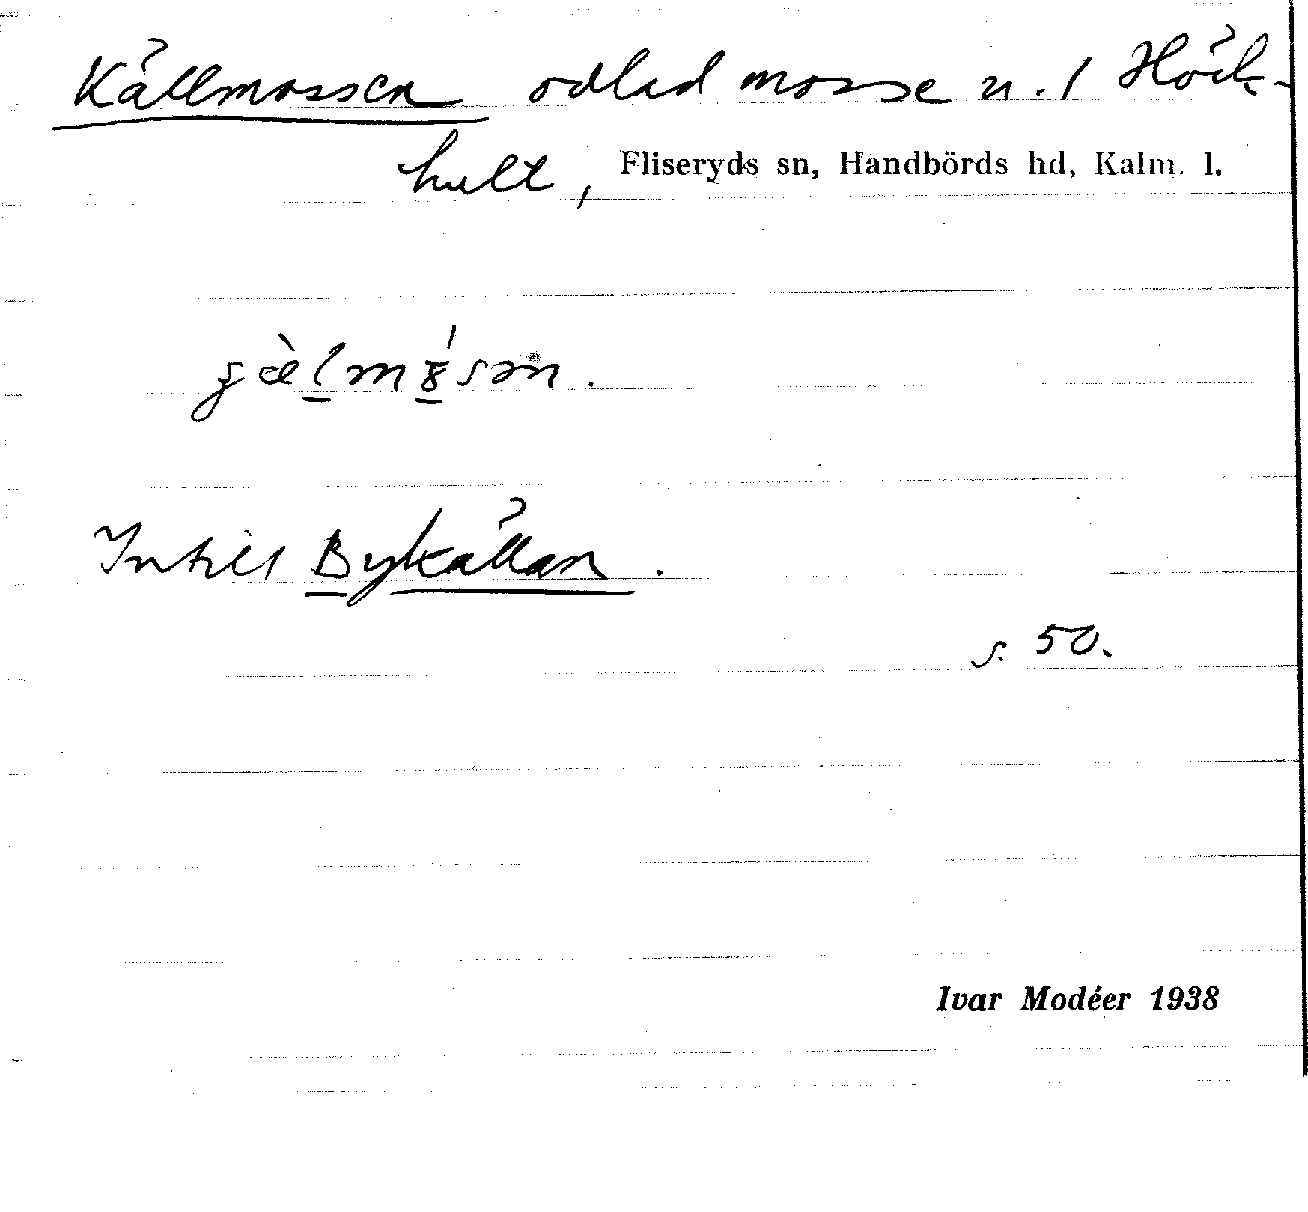 Källmossen odlad mosse n. 1 Höck-
hult, Fliseryds sn, Handbörds hd, Kalm. l.
Intill Bykällan.
s. 50.
Ivar Modéer 1938